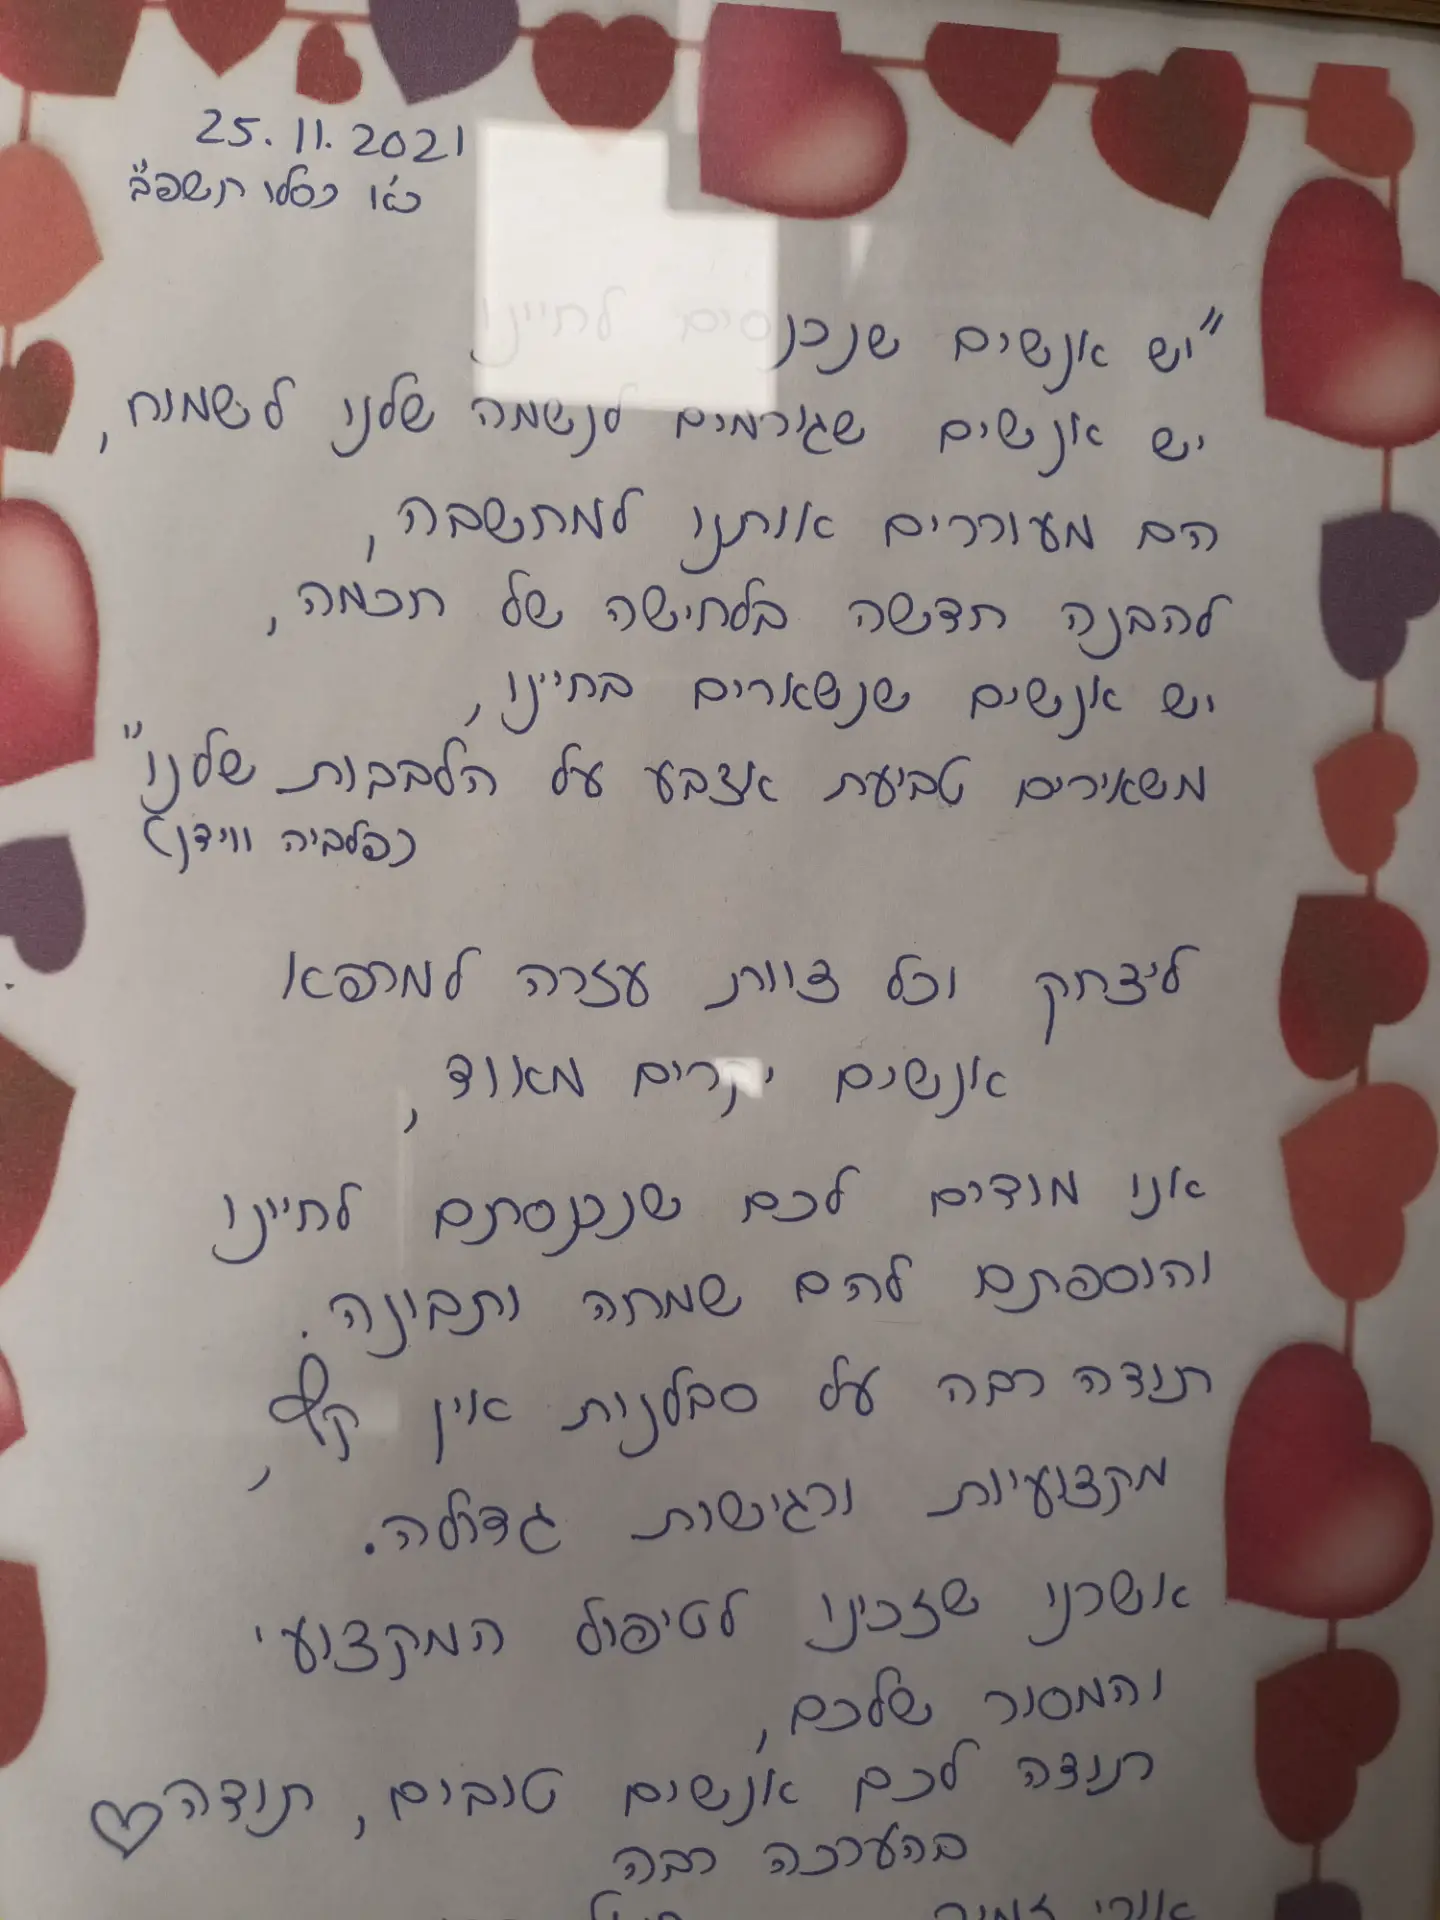 25.11.2021
כ״א כסלו תשפ״ב
"יש אנשים שנכנסים לחיינו
יש אנשים שגורמים לנשמה שלנו לשמוח,
הם מעוררים אותנו למחשבה,
להבנה חדשה בלחישה של חכמה,
יש אנשים שנשארים בחיינו,
משאירים טביעת אצבע על הלבבות שלנו"
ליצחק וכל צוות עזרה למרפא
אנשים יקרים מאוד,
אנו מודים לכם שנכנסתם לחיינו
והוספתם להם שמחה ותבונה.
תודה רבה על סבלנות אין קץ,
מקצועיות ורגישות גדולה.
אשרנו שזכינו לטיפול המקצועי
והמסור שלכם,
תודה לכם אנשים טובים, תודה
בהערכה רבה